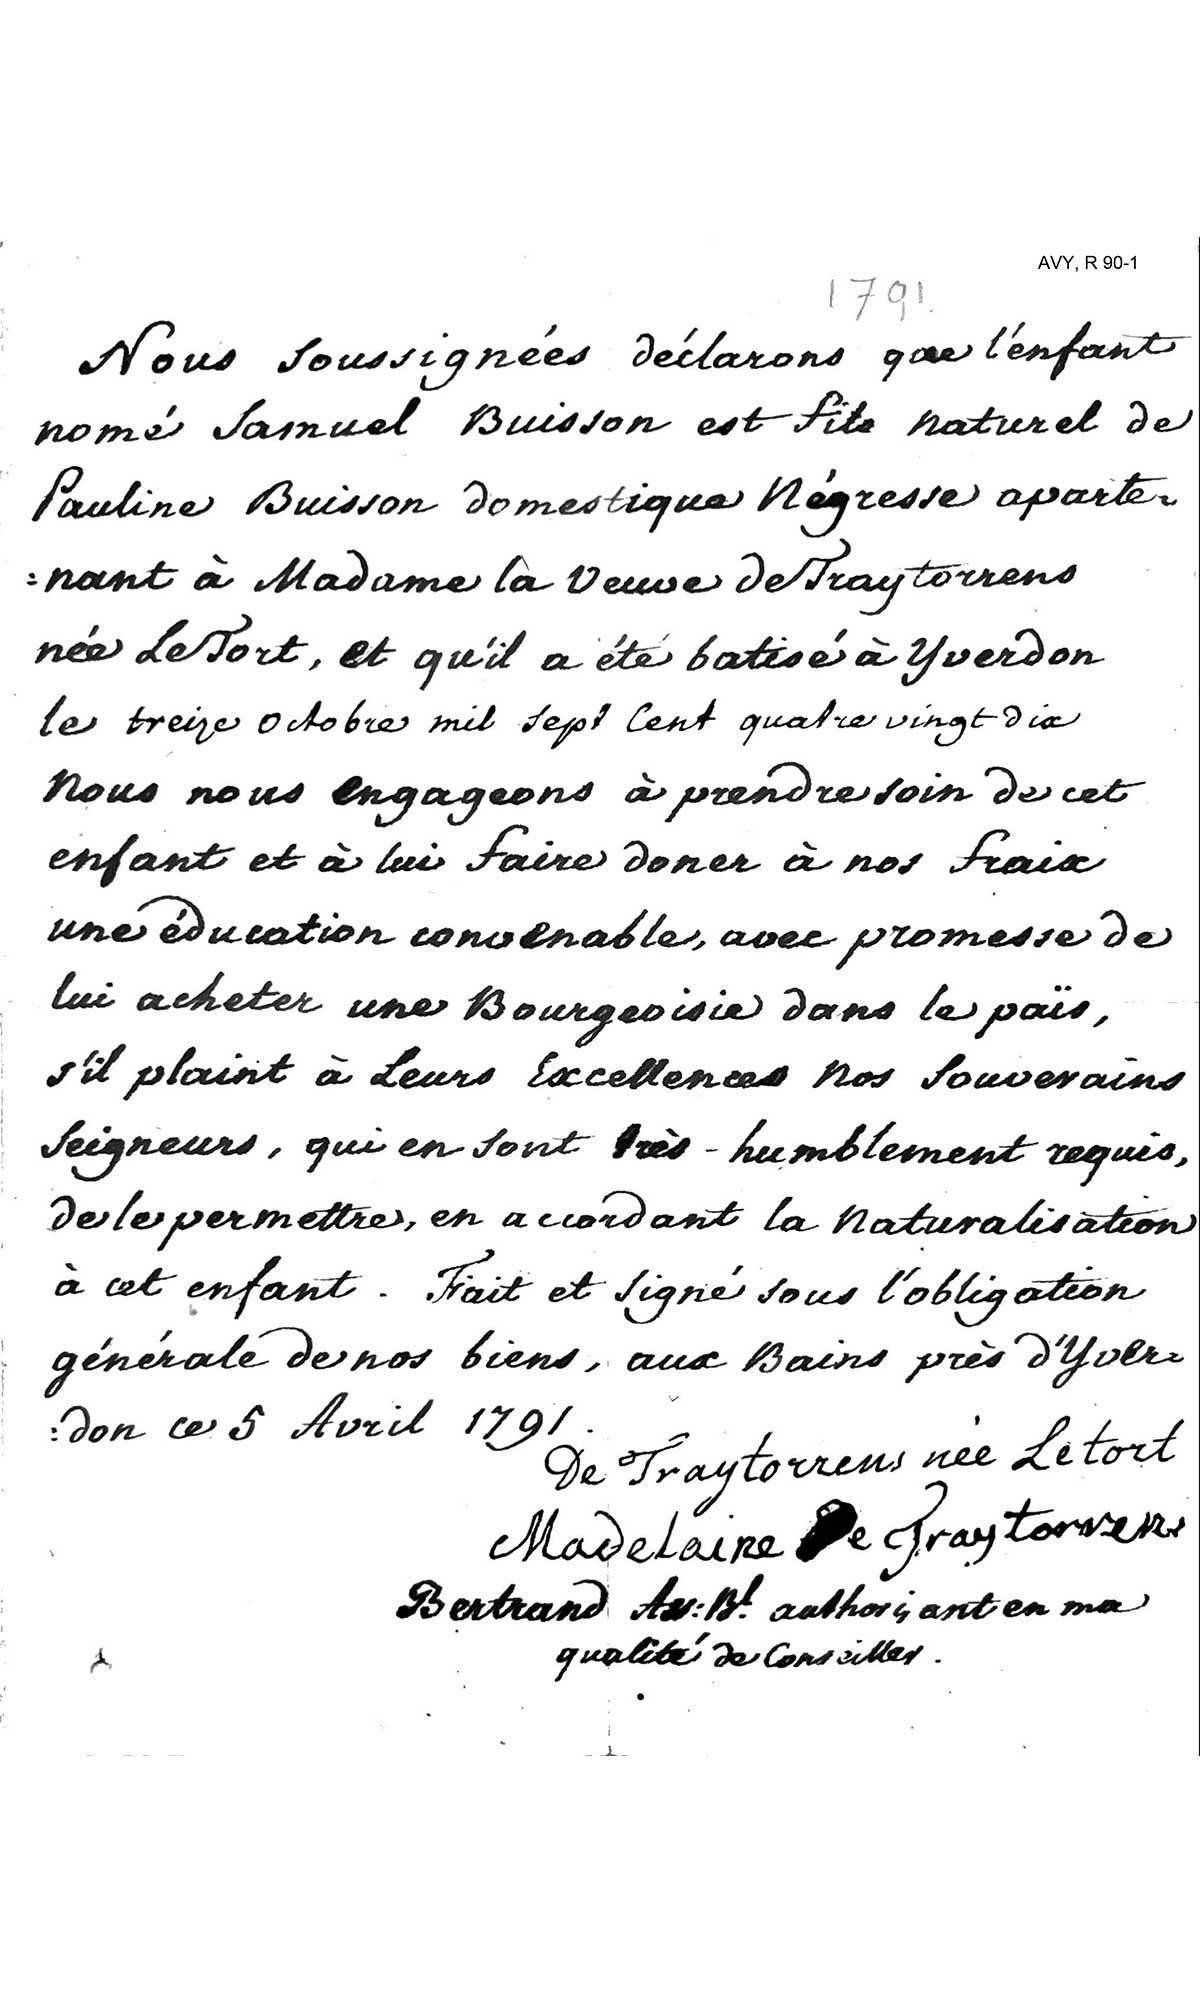 AVY, R 90-1
1791.
Nous soussignées déclarons que l'enfant
nomé Samuel Buisson est fils naturel de
Pauline Buisson domestique Négresse aparte=
=nant à Madame la Veuve de Traytorrens
née LeTort, et qu'il a été batisé à Yverdon
le treize octobre mil sept Cent quatre vingt dix
Nous nous engageons à prendre soin de cet
enfant et à lui faire doner à nos fraix
une éducation convenable, avec promesse de
lui acheter une Bourgeoisie dans le païs,
s'il plaint à Leurs Excellences Nos Souverains
Seigneurs, qui en sont très-humblement requis,
de le permettre, en accordant la Naturalisation
à cet enfant. Fait et signé sous l'obligation
générale de nos biens, aux Bains près d'Yver=
=don ce 5 Avril 1791.
De Traytorrens née Letort
Madelaine De Traytorrens
Bertrand authorisant en ma
qualité de Conseiller.